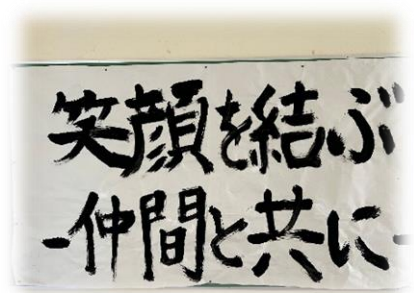 笑顔を結ぶ
-仲間と共に-